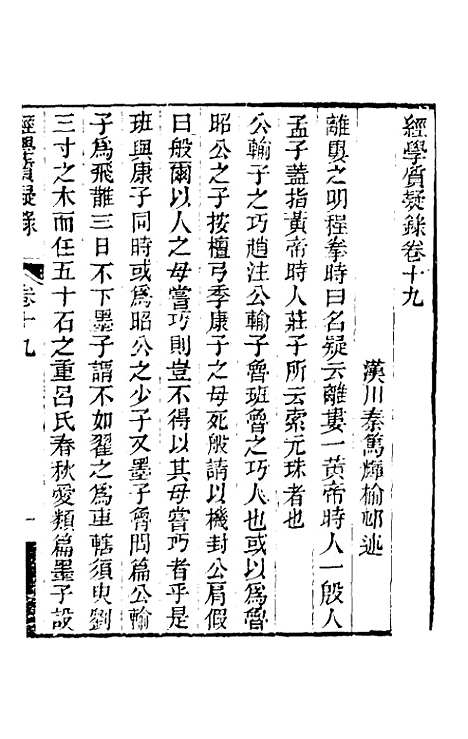 經學質疑錄卷十九
漢川秦篤輝榆邨述
離婁之明程拳時曰名疑云離婁一黃帝時人一殷人
孟子蓋指黃帝時人莊子所云索元珠者也
公輸子之巧趙注公輸子魯班魯之巧人也或以爲魯
昭公之子按檀弓季康子之母死般請以機封公肩假
曰般爾以人之母嘗巧則豈不得以其母嘗巧者乎是
班與康子同時或爲昭公之少子又墨子魯問篇公輸
子爲飛䧿三日不下墨子謂不如翟之爲車轄須臾劉
三寸之木而任五十石之重呂氏春秋愛類篇墨子設
經學質疑錄
卷十九
一